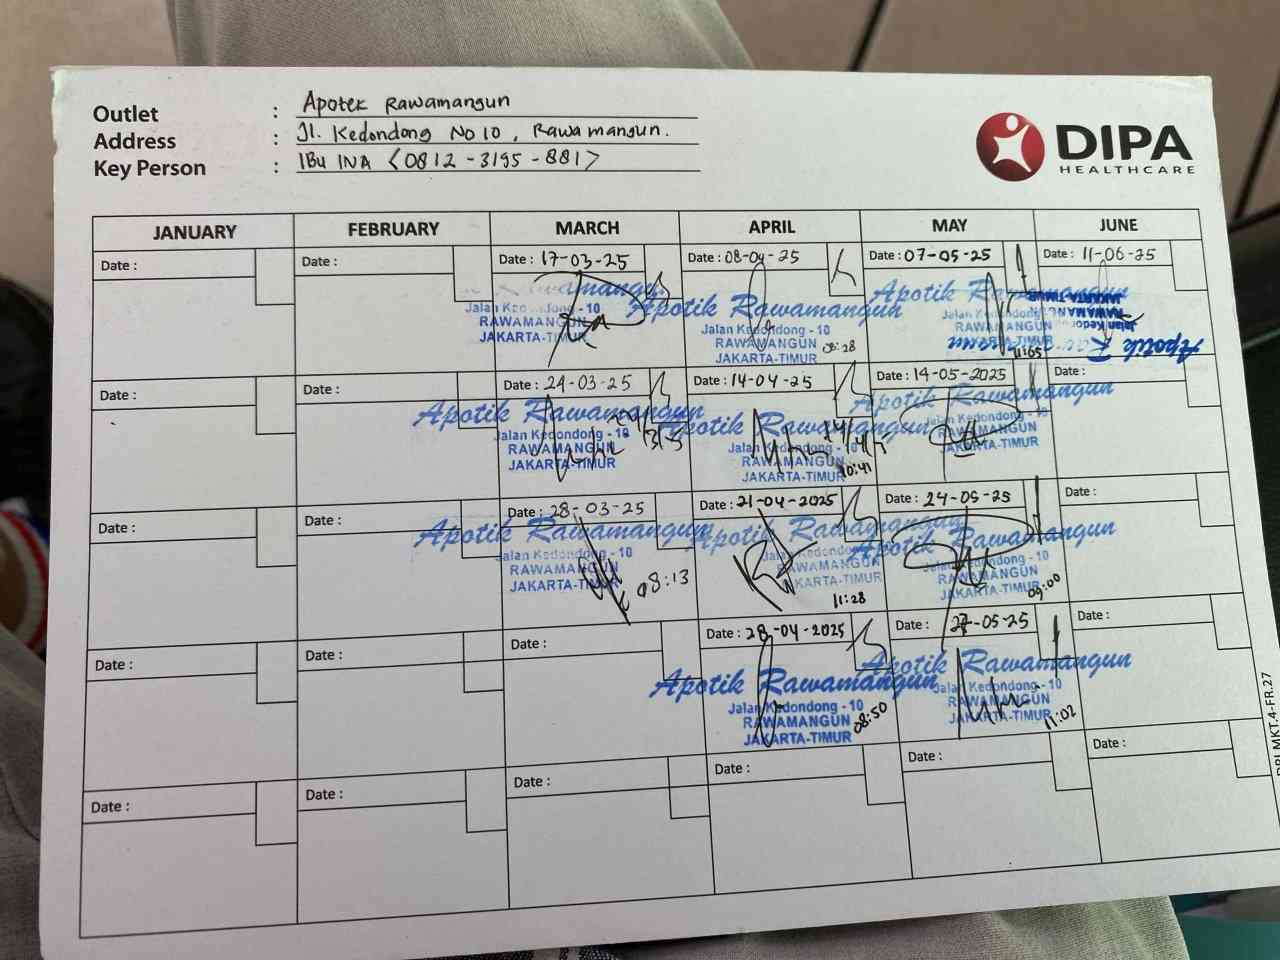 Outlet : Apotek Rawamangun
Address : Jl. Kedondong No 10, Rawamangun.
Key Person : IBu INA <0812-3195-881>
DIPA
HEALTHCARE
JANUARY FEBRUARY MARCH APRIL MAY JUNE
Date : Date : Date : 17-03-25 Date : 08-04-25 Date : 07-05-25 Date : 11-06-25
Apotik Rawamangun
Jalan Kedondong - 10
RAWAMANGUN
JAKARTA-TIMUR
Apotik Rawamangun
Jalan Kedondong - 10
RAWAMANGUN
JAKARTA-TIMUR
08:28
Apotik
RAWAMANGUN
JAKARTA-TIMUR
Apotik
Jalan Kedon
RAWAMANG
JAKARTA-TIMUR
Date : Date : Date : 24-03-25 Date : 14-04-25 Date : 14-05-2025 Date :
Apotik Rawamangun
Jalan Kedondong - 10
RAWAMANGUN
JAKARTA-TIMUR
Apotik Rawamangun
Jalan Kedondong - 10
RAWAMANGUN
JAKARTA-TIMUR
10:41
Apotik Rawamangun
Jalan Kedondong - 10
RAWAMANGUN
JAKARTA-TIMUR
Date : Date : Date : 28-03-25 Date : 21-04-2025 Date : 24-05-25 Date :
Apotik Rawamangun
Jalan Kedondong - 10
RAWAMANGUN
JAKARTA-TIMUR
08:13
Apotik Rawamangun
Jalan Kedondong - 10
RAWAMANGUN
JAKARTA-TIMUR
11:28
Apotik Rawamangun
Jalan Kedondong - 10
RAWAMANGUN
JAKARTA-TIMUR
09:00
Date : Date : Date : Date : 28-04-2025 Date : 27-05-25 Date :
Apotik Rawamangun
Jalan Kedondong - 10
RAWAMANGUN
JAKARTA-TIMUR
08:50
Apotik Rawamangun
Jalan Kedondong - 10
RAWAMANGUN
JAKARTA-TIMUR
11:02
Date : Date : Date : Date : Date : Date :